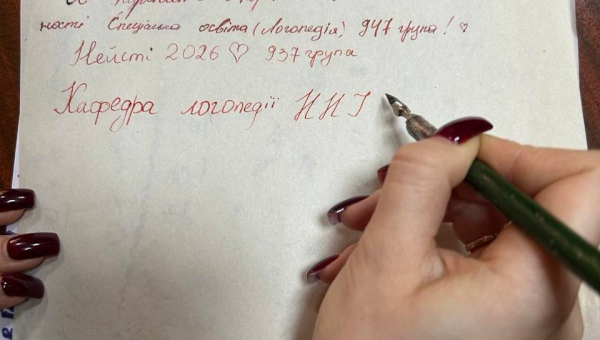 ності Спеціальна освіта (Логопедія) 947 група! ♡
Нейсті 2026 ♡ 937 група
Кафедра логопедії ННІ